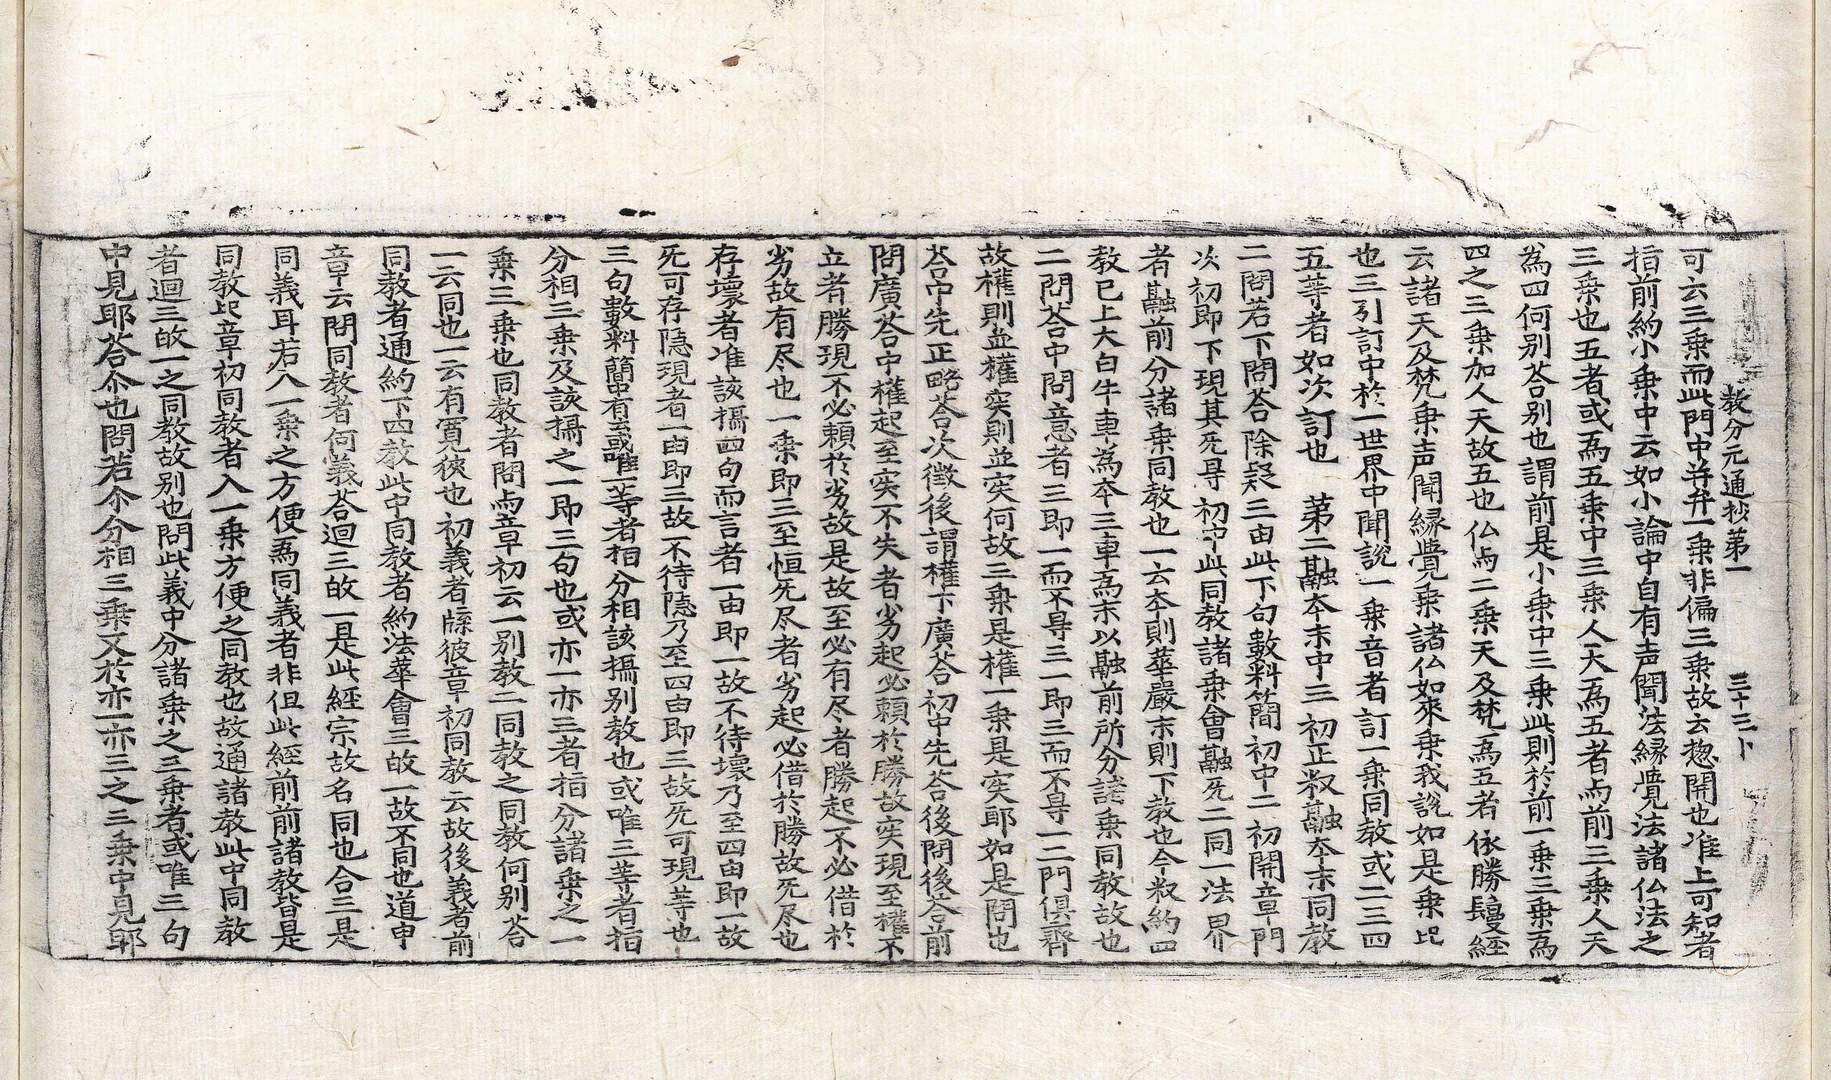 教分元通抄第一　三十三卜
可云三乗而此門中并弁一乗非偏三乗故云惣開也准上可知者
指前約小乗中云如小論中自有声聞法縁覺法諸仏法之
三乗也五者或為五乗中三乗人天為五者而前三乗人天
為四何别荅别也謂前是小乗中三乗此則於前一乗三乗為
四之三乗加人天故五也仏与二乗天及梵為五者依勝鬘經
云諸天及梵乗声聞縁覺乗諸仏如來乗我說如是乗比
也三引訂中於一世界中聞說一乗音者訂一乗同教或二三四
五等者如次訂也　苐二融夲末中三初正叙融夲末同教
二問若下問荅除疑三由此下句數料簡初中二初開章門
次初即下現其旡㝵初中此同教諸乗會融旡二同一法界
者融前分諸乗同教也一云夲則華嚴末則下教也今叙約四
教已上大白牛車為夲三車為末以融前所分諸乗同教故也
二問荅中問意者三即一而不㝵三一即三而不㝵一二門俱齊
故權則並權実則並実何故三乗是權一乗是実耶如是問也
荅中先正略荅次徵後謂權下廣荅初中先荅後問後荅前
問廣荅中權起至実不失者劣起必頼於勝故実現至權不
立者勝現不必頼於劣故是故至必有尽者勝起不必借於
劣故有尽也一乗即三至恒旡尽者劣起必借於勝故旡尽也
存壞者准該攝四句而言者一由即一故不待壞乃至四由即一故
旡可存隱現者一由即三故不待隱乃至四由即三故旡可現等也
三句數料簡中有云或唯一等者相分相該攝别教也或唯三等者指
分相三乗及該攝之一即三句也或亦一亦三者指分諸乗之一
乗三乗也同教者問与章初云一别教二同教之同教何别荅
一云同也一云有寛狹也初義者牒彼章初同教云故後義者前
同教者通約下四教此中同教者約法華會三故一故不同也道申
章云問同教者何義荅迴三故一是此經宗故名同也合三是
同義耳若八一乗之方便為同義者非但此經前前諸教皆是
同教比章初同教者入一乗方便之同教也故通諸教此中同教
者迴三故一之同教故别也問此義中分諸乗之三乗者或唯三句
中見耶荅尒也問若尒分相三乗又於亦一亦三之三乗中見耶